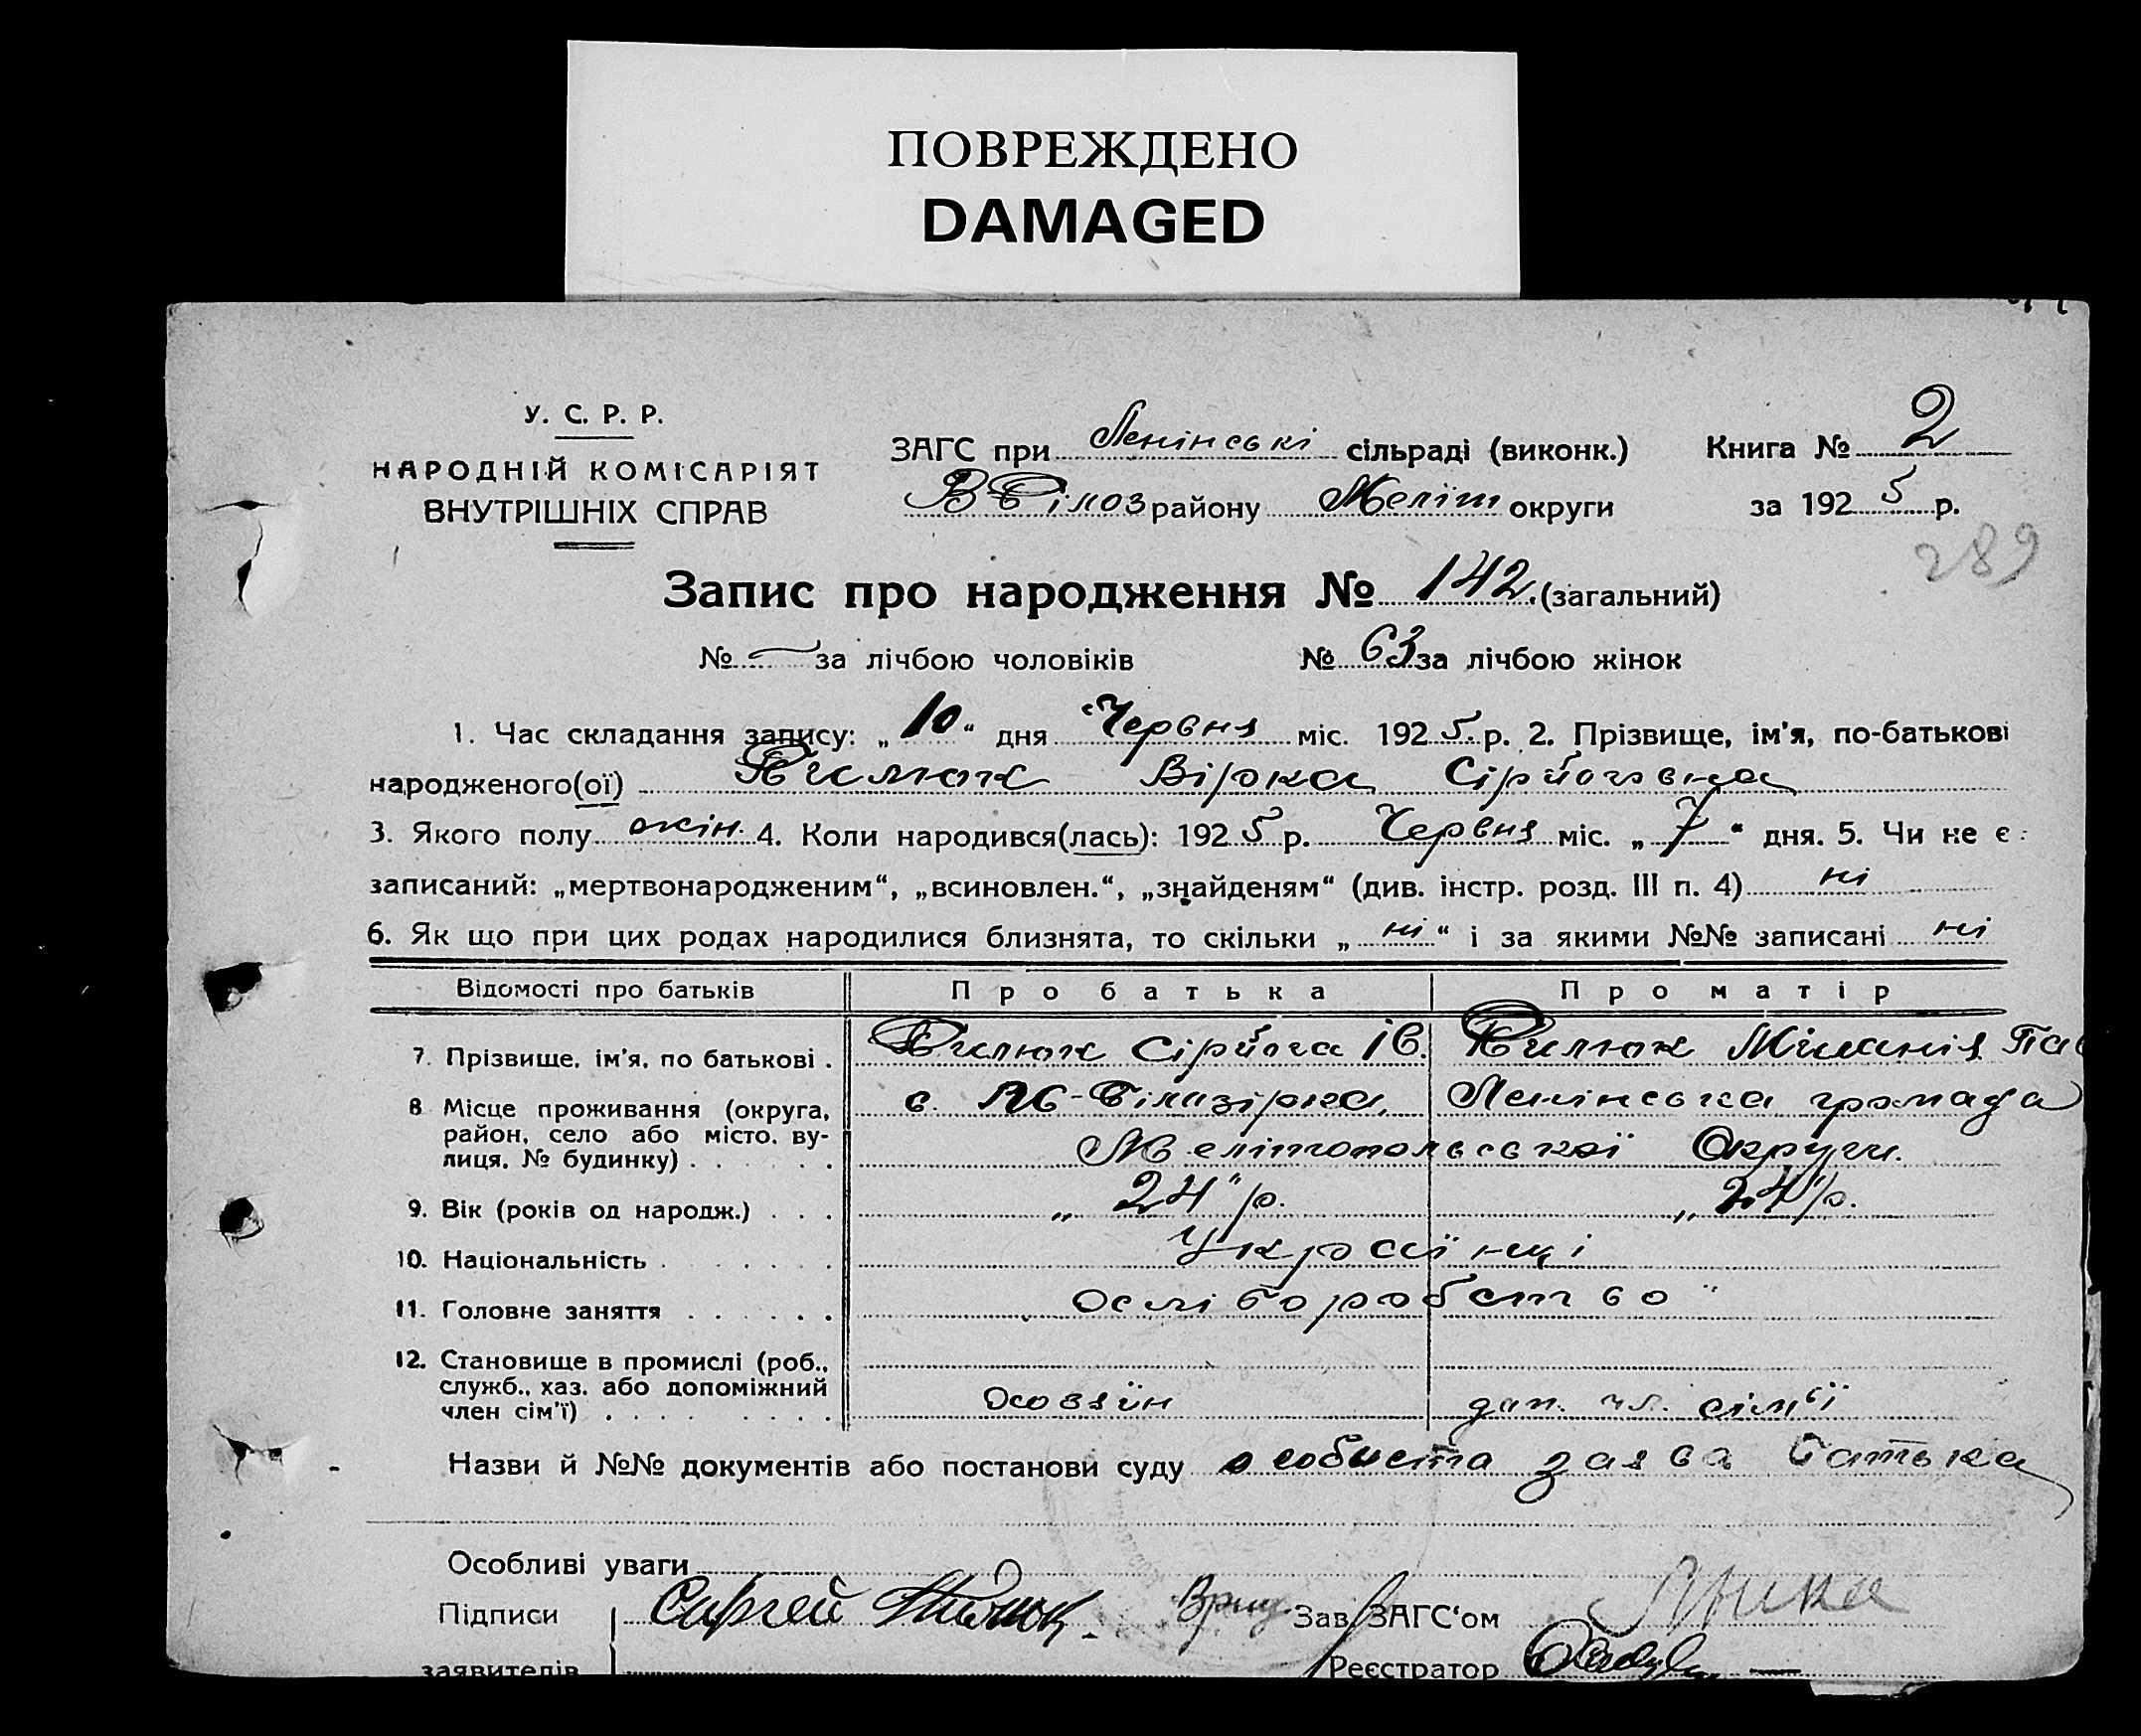 ПОВРЕЖДЕНО
DAMAGED
У. С. Р. Р.
НАРОДНІЙ КОМІСАРІЯТ
ВНУТРІШНІХ СПРАВ
ЗАГС при Ленінські сільраді (виконк.)
В Білоз району Меліт округи
Книга № 2
за 1925 р.
289
Запис про народження № 142 (загальний)
№ — за лічбою чоловіків № 63 за лічбою жінок
1. Час складання запису: „10“ дня Червня міс. 1925 р. 2. Прізвище, ім'я, по-батькові
народженого(ої) Вірка
3. Якого полу жін. 4. Коли народився(лась): 1925 р. Червня міс. „7“ дня. 5. Чи не є
записаний: „мертвонародженим“, „всиновлен.“, „знайденям“ (див. інстр. розд. III п. 4) ні
6. Як що при цих родах народилися близнята, то скільки „ні“ і за якими №№ записані ні
Відомості про батьків Про батька Про матір
7. Прізвище, ім'я, по батькові . Ів.
8 Місце проживання (округа, район, село або місто, вулиця, № будинку) . . . . . . с. Білазірка, Ленінська громада
Мелітопольської Округи.
9. Вік (років од народж.) . . . „24“ р. „24“ р.
10. Національність . . . . . . . Українці
11. Головне заняття . . . . . .
12. Становище в промислі (роб., служб., хаз. або допоміжний член сім'ї) . . . . . . . . . доп. чл. сім'ї
Назви й №№ документів або постанови суду особиста заява батька
Особливі уваги
Підписи Сергей
Зав ЗАГС'ом
заявителів
Реєстратор